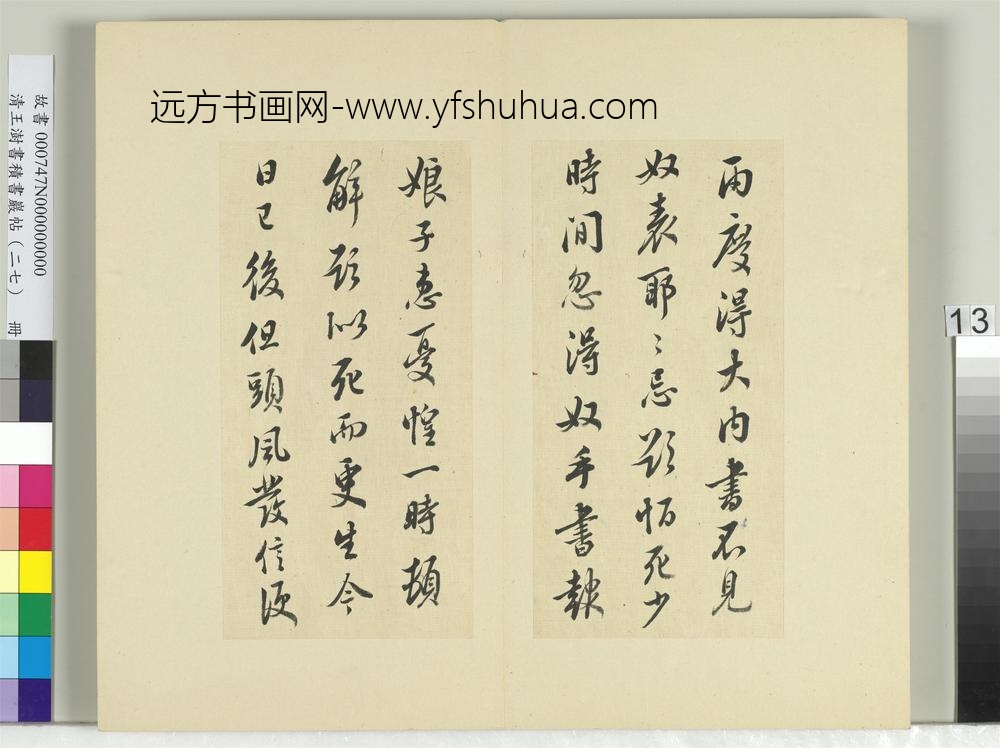 远方书画网-www.yfshuhua.com
兩度得大内書不見
奴表耶〻忌欲恒死少
時間忽得奴手書報
娘子患憂惶一時頓
解欲似死而更生今
日已後但頭風發信便
故書 000747N000000000
清王澍書積書巖帖(二七) 冊
13